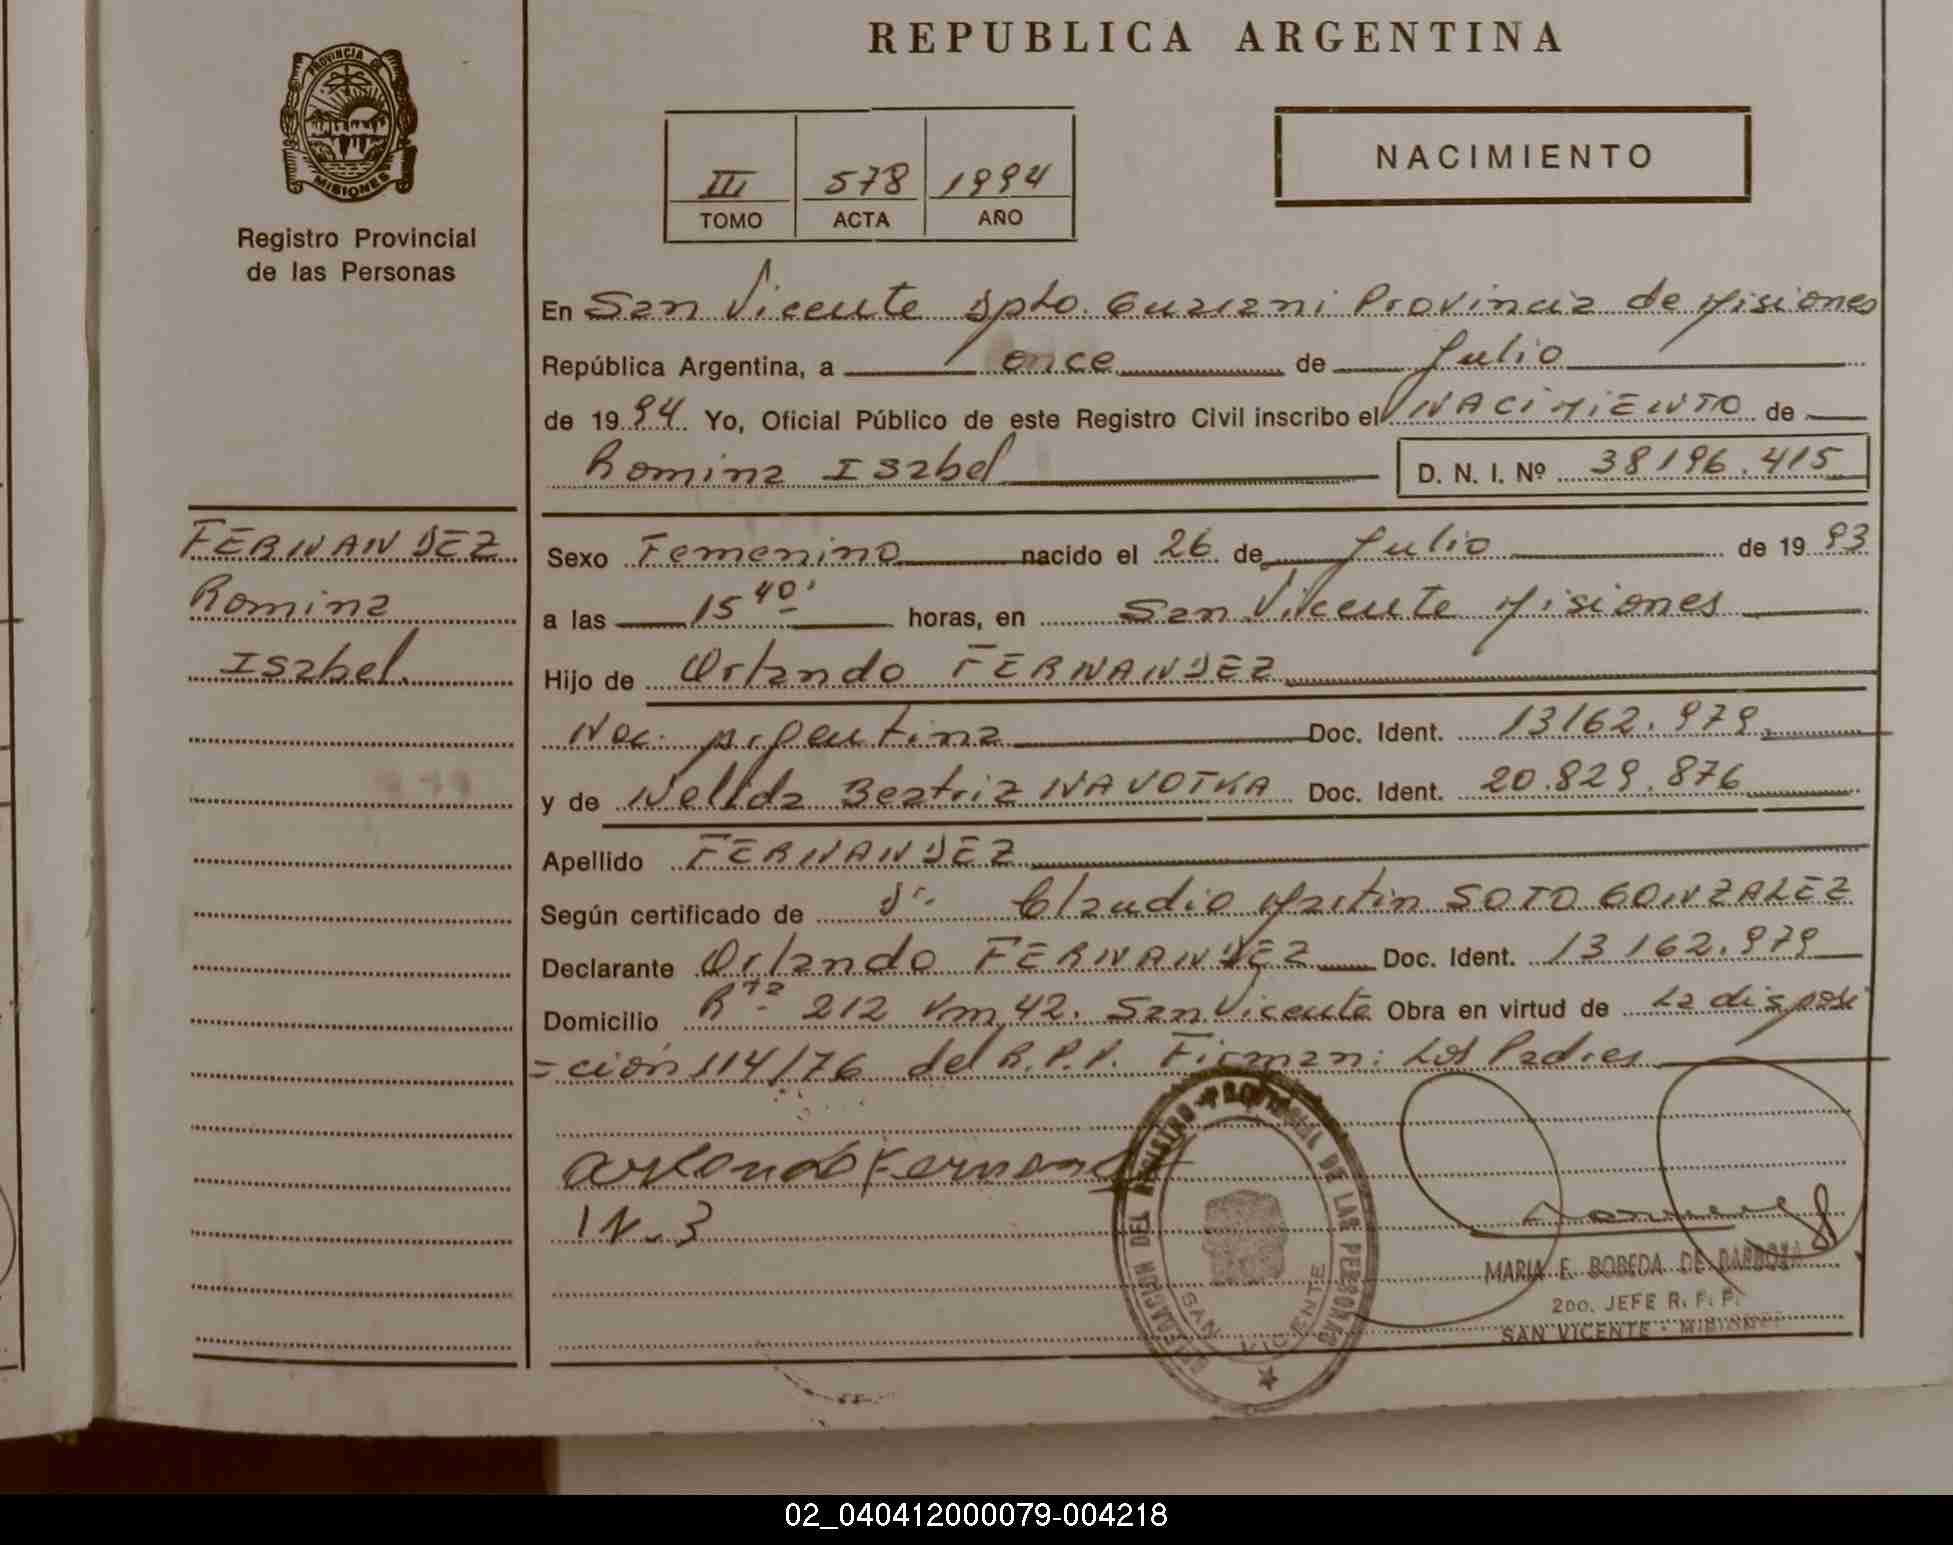 REPUBLICA ARGENTINA
PROVINCIA DE
MISIONES
Registro Provincial
de las Personas
III 578 1994
TOMO ACTA AÑO
NACIMIENTO
En San Vicente Dpto. Guarani Provincia de Misiones
República Argentina, a once de Julio
de 1994 Yo, Oficial Público de este Registro Civil inscribo el NACIMIENTO de
Romina Isabel D. N. I. Nº 38196.415
FERNANDEZ
Romina
Isabel.
Sexo Femenino nacido el 26 de Julio de 1993
a las 15 40' horas, en San Vicente Misiones
Hijo de Orlando FERNANDEZ
Nac. Argentina Doc. Ident. 13162.979
y de Nelida Beatriz NAVOTKA Doc. Ident. 20.829.876
Apellido FERNANDEZ
Según certificado de Dr. Claudio Martin SOTO GONZALEZ
Declarante Orlando FERNANDEZ Doc. Ident. 13162.979
Domicilio Rta. 212 Km 42. San Vicente Obra en virtud de La disposi
=ción 114/76 del R.P.P. Firman: Los Padres
Orlando Fernand
DELEGACION DEL REGISTRO PROVINCIAL DE LAS PERSONAS
SAN VICENTE
MARIA E. BOBEDA DE BARBOZA
2DO. JEFE R. P. P.
SAN VICENTE - MISIONES
02_040412000079-004218